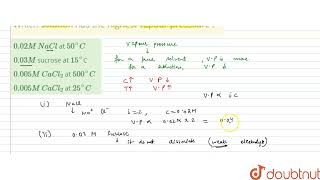 Which solution has the highest vapour pressure ?
0.02M NaCl at 50°C
0.03M sucrose at 15°C
0.005M CaCl₂ at 500°C
0.005M CaCl₂ at 25°C
vapour pressure
for a pure solvent , V.P is more
for a solution, V.P ↓
C↑ V.P↓
T↑ V.P↑
V.P ∝ iC
(i) NaCl
Na⁺ Cl⁻ i=2, C=0.02M
V.P ∝ 0.02 x 2 = 0.04
(ii) 0.03 M Sucrose
it do not dissociate (weak electrolyte)
doubtnut